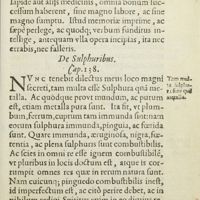 lapide aut alijs medicinis, omnia bonum suc-
cessum haberent, sine magno labore, ac sine
magno sumptu. Istud memoriæ infprime, ac
sæpè perlege, ac quodq; verbum funditus in-
tellige, antequam vlla opera incipias, ita nec
errabis, nec falleris.
De Sulphuribus.
Cap. 138.
NVNC tenebit dilectus meus loco magni
secreti, tam multa esse Sulphura quã me-
talla. Ac quodque prout mundum, ac purum
est, etiam metalla pura sunt. Ita fit vt, plom-
bum, ferrum, cuprum tam immunda sint; nam
eorum sulphura immunda, pinguia, ac fœtida
sunt. Quare immunda, æruginosa, nigra, fœ-
tentia, ac plena sulphuris sunt combustibilis.
Ac scies in omni re esse igneum combustibile,
vt pluribus in locis dictum est, ac id ostendunt
omnes res quæ in rerum natura sunt.
Nam cuicunq; pinguedo combustibilis inest,
id imperfectum est, ac citò perire debet, ac in
Tam mul-
ta Sulphu-
ra sunt quã
metalla.